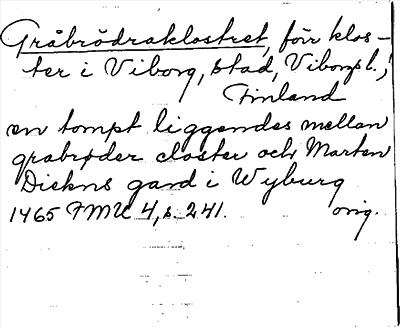 Gråbrödraklostret, förr klos-
ter i Viborg, stad, Viborgs l.,
Finland
en tompt liggendes mellan
grabrøder closter och Marten
Diekns gard i Wyburg
1465 FMU 4, s. 241. orig.